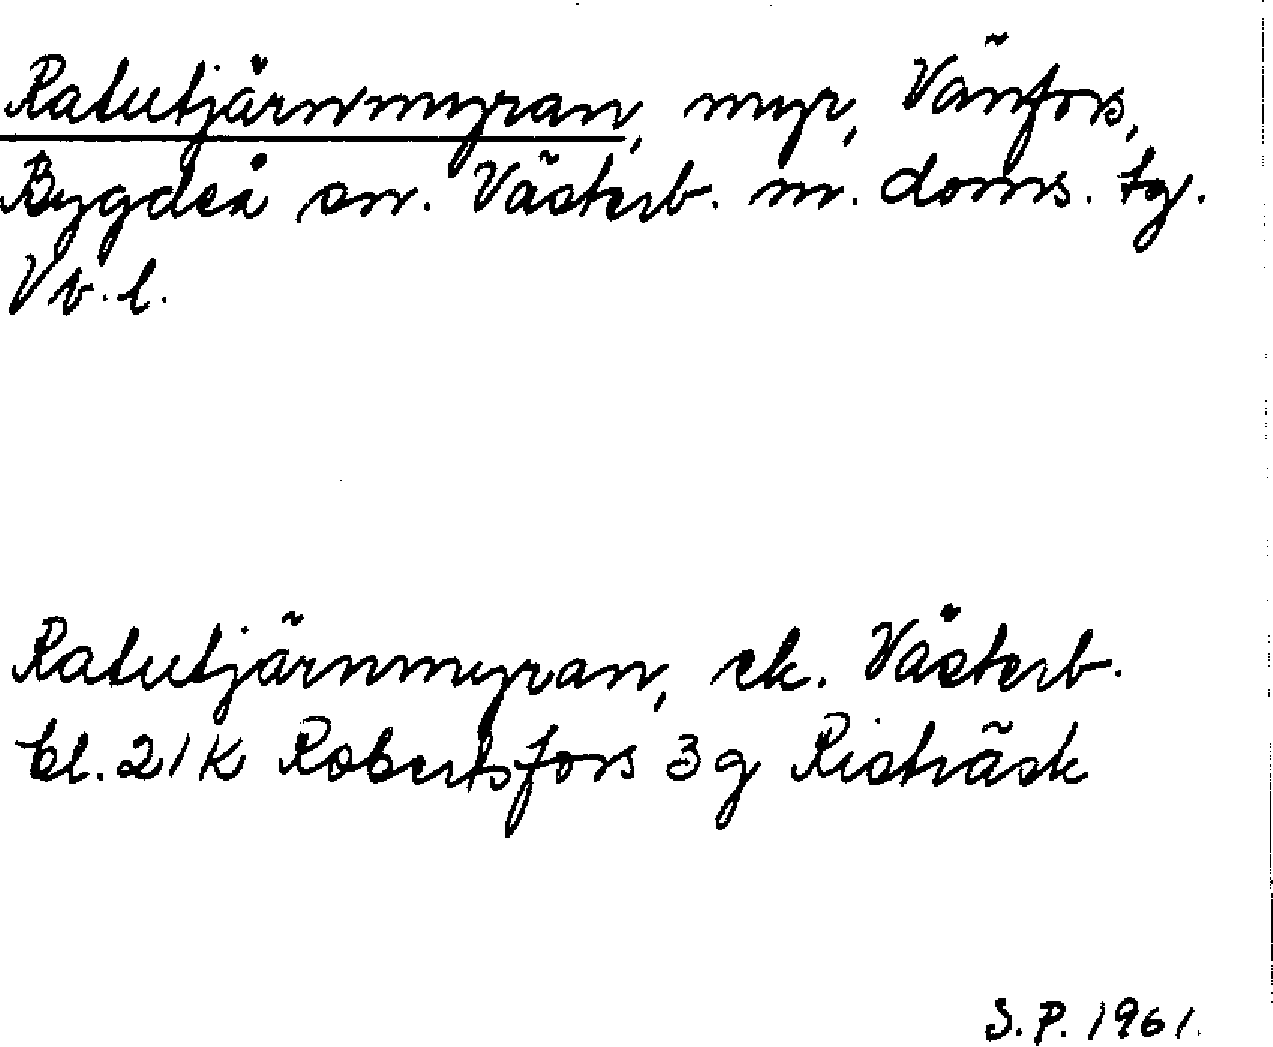 Ratutjärnmyran, myr, Vänfors,
Bygdeå sn. Västerb. n. doms. tg.
Vb. l.
Ratutjärnmyran, ek. Västerb.
bl. 21 K Robertsfors 3 g Risträsk
S. P. 1961.